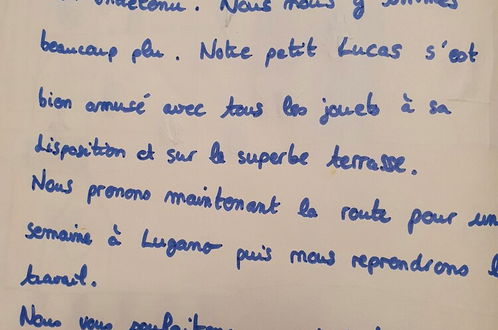 entretenu. Nous nous y sommes
beaucoup plu. Notre petit Lucas s'est
bien amusé avec tous les jouets à sa
disposition et sur la superbe terrasse.
Nous prenons maintenant la route pour une
semaine à Lugano puis nous reprendrons le
travail.
Nous vous souhaitons